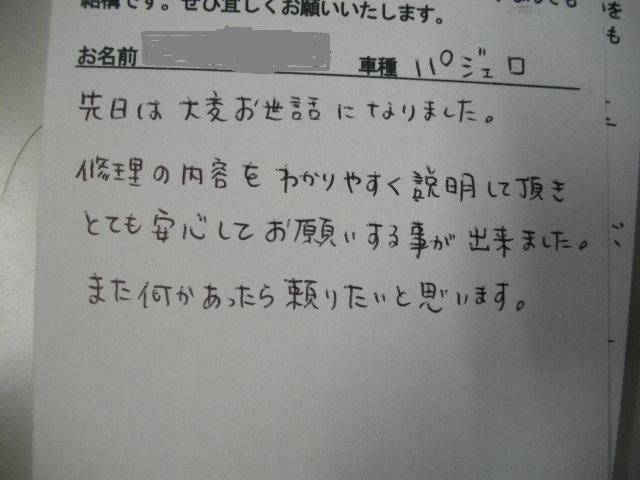 結構です。ぜひ宜しくお願いいたします。
お名前 車種 パジェロ
先日は大変お世話になりました。
修理の内容をわかりやすく説明して頂き
とても安心してお願いする事が出来ました。
また何かあったら頼りたいと思います。